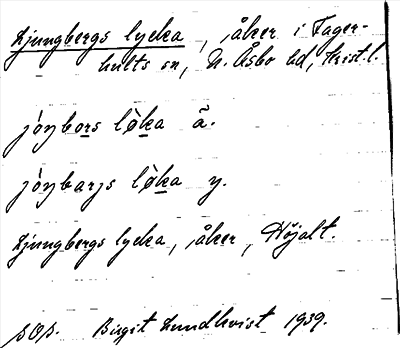 Ljungbergs lycka, åker i Fager-
hults sn, N. Åsbo hd, Krist. l.
jóybors lòka ã.
jóybarjs lòka y.
Ljungbergs lycka, åker, Höjalt.
Birgit Lundkvist 1939.